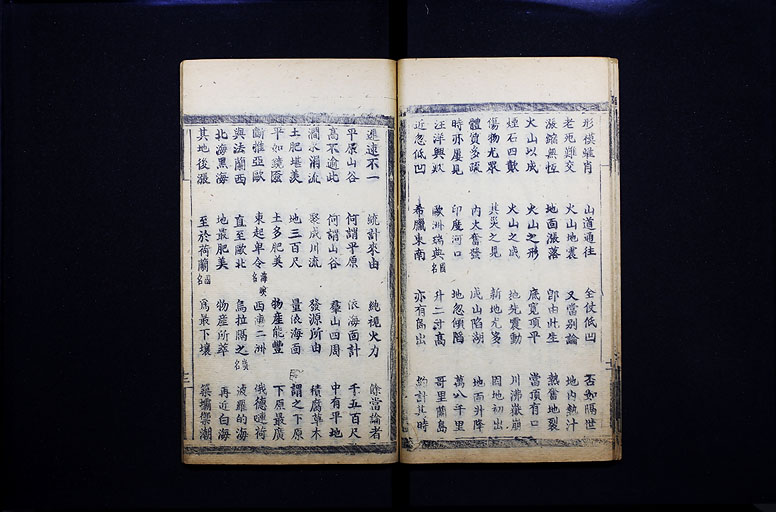 形模雖肖 山道通往 全仗低凹 否如隔世
老死難交 火山地震 又當别論 地內熱汁
漲縮無恆 地面漲落 卽由此生 熱奮地裂
火山以成 火山之形 底寬頂平 當頂有口
煙石四散 火山之成 地先震動 川沸嶽崩
傷物尤眾 其災之見 新地尤多 因地初出
體質多疏 內火奮發 成山陷湖 地面升降
時亦屢見 印度河口 地忽傾陷 萬八千里
汪洋興歎 歐洲瑞典國名 升二寸高 哥里蘭島
近忽低凹 希臘東南 亦有島出 約計其時
遲速不一 統計來由 純視火力 餘當論者
平原山谷 何謂平原 依海面計 千五百尺
高不逾此 何謂山谷 羣山四周 中有平地
澗水涓流 聚成川流 發源所由 積腐草木
土肥堪美 地三百尺 量依海面 謂之下原
平如鏡匳 土多肥美 物產能豐 下原最廣
斷惟亞歐 東起卑令海峽名 西 二洲 俄德璉荷
與法蘭西 直至歐北 烏拉 之嶺名 波羅的海
北海黑海 地最肥美 物產所萃 再近白海
其地後漲 至於荷蘭國名 爲最下壤 築壩禦潮